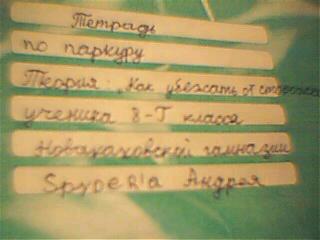 Тетрадь
по паркуру
Теория: „Как убежать от сторожа
ученика 8-Г класса
Новокаховской гимназии
SpydeR'a Андрея